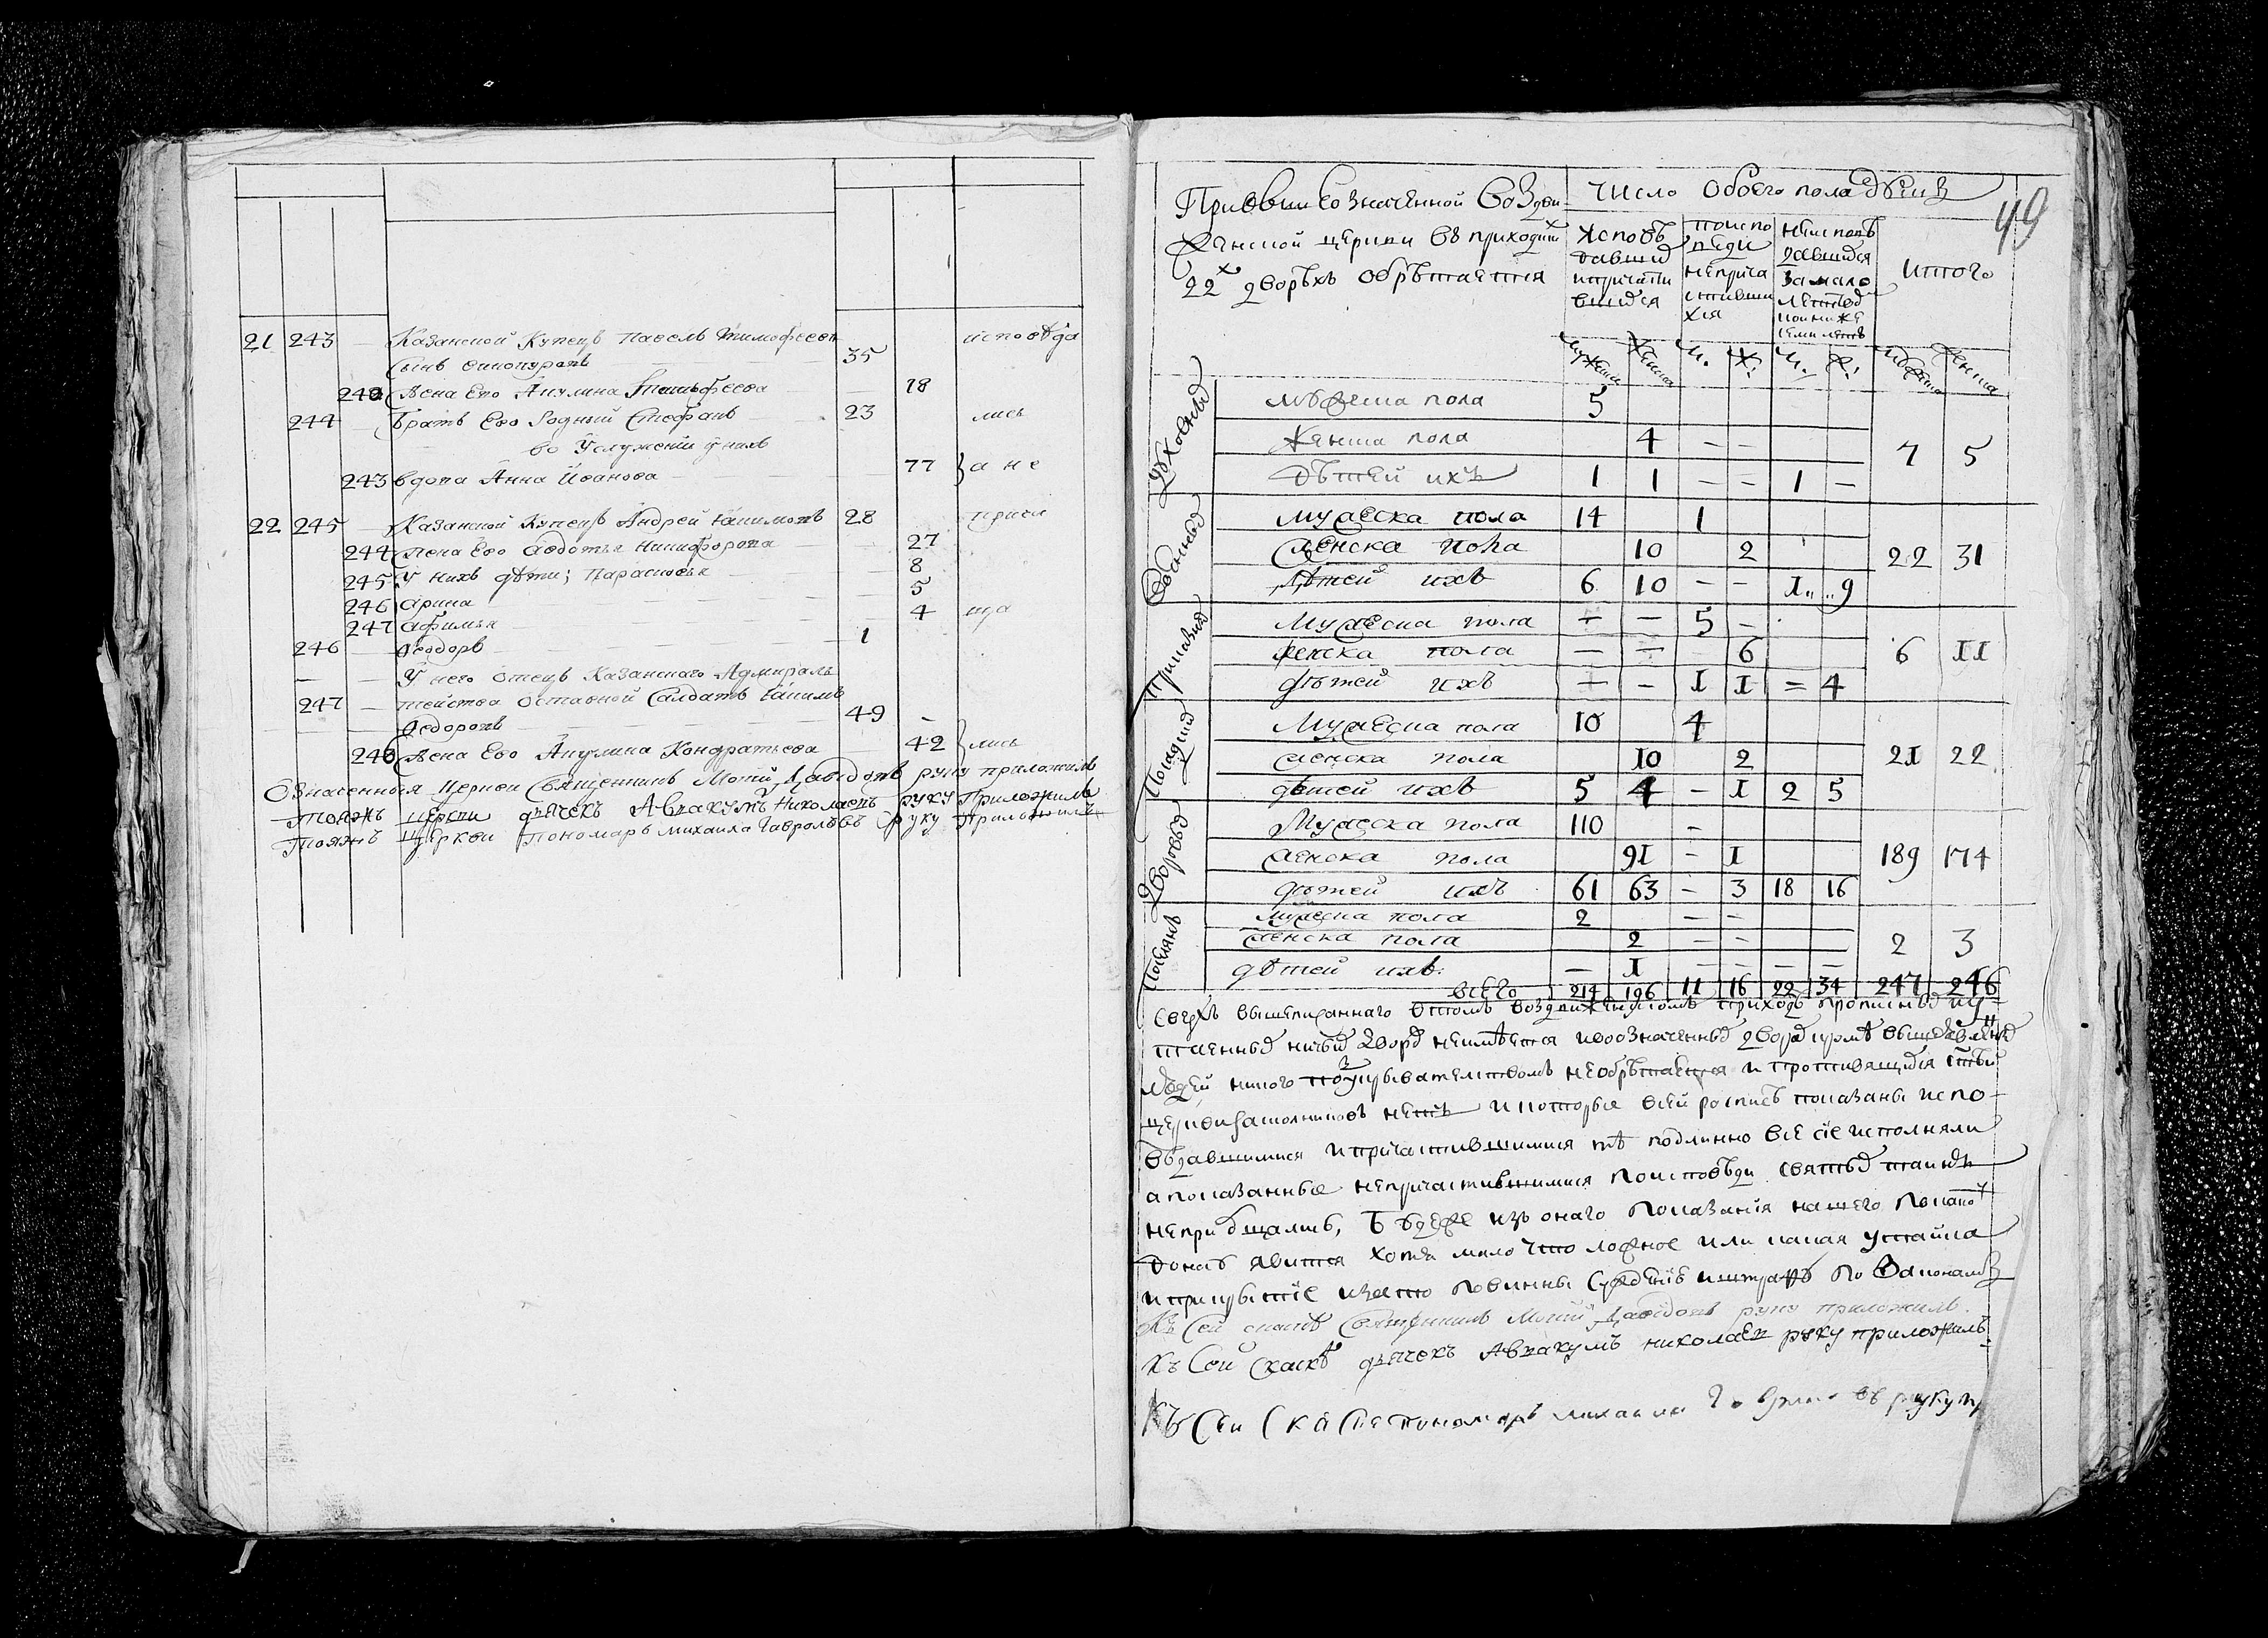 21 243 — Казанской Купецъ Павелъ Тимофеевъ
сынъ винокуровъ 35 исповѣда
242 Жена Ево Акулина Тимофеева — 18
244 — Братъ Ево Родный Стефанъ — 23 лись
во Услуженіи у нихъ
243 вдова Анна Иванова — 77 а не
22 245 — Казанской Купецъ Андрей Іакимовъ 28 прича
244 Жена Ево Авдотья Никифорова — 27
245 У нихъ дѣти; Парасковья — 8
246 Арина — 5
247 Афимья — 4 ща
246 — Ѳеодоръ — 1
— — У него Отецъ Казанскаго Адмираль
247 — тейства Отставной Салдатъ Іакимъ
Ѳедоровъ — 49 —
248 Жена Ево Акулина Кондратьева — 42 лись
Означенныя Церкви Священникъ Мотій Давыдовъ руку приложилъ
Тояжъ церкви дьячекъ Авакумъ Николаевъ руку Приложилъ
Тояжъ Церкви Пономарь михаила Гавриловъ руку Приложилъ
49
При вышеозначенной Воздви
женской церкви въ приходскихъ
22х дворѣхъ обрѣтается
число обоего пола душъ
исповѣ
давших
и причасти
вшихся
по испо
веди
не прича
стивши
хся
не испове
давшихся
за мало
летство
итого
мужеска женска м. ж: м. ж: мужеска женска
Духовных
мужеска пола 5
женска пола 4 – – 7 5
дѣтей ихъ 1 1 – – 1 –
Мужеска пола 14 1
женска пола 10 2 22 31
дѣтей ихъ 6 10 – – I,, ,,9
Приказных
Мужеска пола + — 5 –
женска пола — — 6 6 II
дѣтей ихъ — – I I = 4
Посадских
Мужеска пола 10 4
женска пола 10 2 2I 22
дѣтей ихъ 5 4 – I 2 5
Дворовых
Мужеска пола 110 –
женска пола 9I – I 189 174
дѣтей ихъ 61 63 – 3 18 16
Посели
мужеска пола 2 – –
женска пола 2 – – 2 3
дѣтей ихъ. — I — — — —
всего 214 196 11 16 22 34 247 246
Сверхъ вышеписаннаго в томъ воздвиженскомъ приходѣ прописных и у
таенных ничьих дворов неимѣется и во означенных дворах кромѣ вышеявленных
людей никого по укрывательствомъ необрѣтается и противящихся стей
церкви раскольниковъ нетъ и которые в сей росписѣ показаны испо-
вѣдавшимися и причастившимися тѣ подлинно все сіе исполняли
а показанные непричастившимися по исповѣди святых таинъ
неприобщались, а ежели изъ онаго показания нашего
явится хотя мало что ложное или какая утайка
и прикрытие и за то повинны суждению и штрафъ по законамъ
Къ сей скаскѣ Священникъ Мотій Давыдовъ руку приложилъ.
Къ Сей скаскѣ дьячекъ Авакумъ николаевъ руку приложилъ.
Къ Сеи Скаске пономарь михаила Гавриловъ руку пр